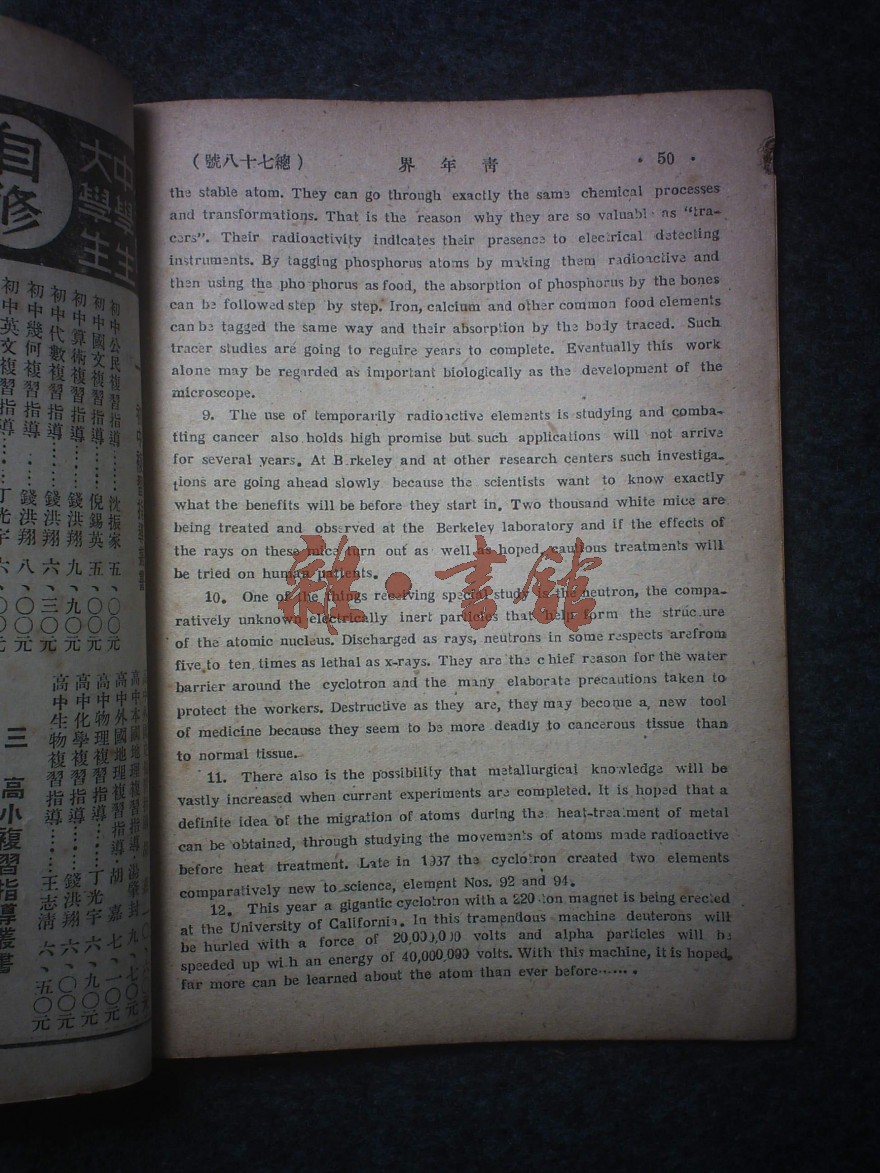 自修
中學生
大學生
初中公民複習指導……沈振家 五、〇〇元
初中國文複習指導……倪錫英 五、〇〇元
初中算術複習指導……錢洪翔 九、九〇元
初中代數複習指導……錢洪翔 六、三〇元
初中幾何複習指導……錢洪翔 八、〇〇元
初中英文複習指導……丁光宇 六、〇〇元
高中本國地理複習指導·湯學封 九、七〇元
高中外國地理複習指導·胡 嘉 七、一〇元
高中物理複習指導……丁光宇 六、九〇元
高中化學複習指導……錢洪翔 六、〇〇元
高中生物複習指導……王志清 六、五〇元
三 高小複習指導叢書
(號八十七總) 界年靑 · 50 ·
the stable atom. They can go through exactly the same chemical processes
and transformations. That is the reason why they are so valuabl as "tra-
cers". Their radioactivity indicates their presence to electrical detecting
instruments. By tagging phosphorus atoms by making them radioactive and
then using the pho phorus as food, the absorption of phosphorus by the bones
can be followed step by step. Iron, calcium and other common food elements
can be tagged the same way and their absorption by the body traced. Such
tracer studies are going to reguire years to complete. Eventually this work
alone may be regarded as important biologically as the development of the
microscope.
9. The use of temporarily radioactive elements is studying and comba-
tting cancer also holds high promise but such applications will not arrive
for several years. At B rkeley and at other research centers such investiga-
tions are going ahead slowly because the scientists want to know exactly
what the benefits will be before they start in. Two thousand white mice are
being treated and observed at the Berkeley laboratory and if the effects of
the rays on these mice turn out as well as hoped, cautious treatments will
be tried on human patients.
10. One of the things receiving special study is the neutron, the compa-
ratively unknown electrically inert particles that help form the struc.ure
of the atomic nucleus. Discharged as rays, neutrons in some respects arefrom
five to ten times as lethal as x-rays. They are the c hief reason for the water
barrier around the cyclotron and the many elaborate precautions taken to
protect the workers. Destructive as they are, they may become a new tool
of medicine because they seem to be more deadly to cancerous tissue than
to normal tissue.
11. There also is the possibility that metallurgical knowledge will be
vastly increased when current experiments are completed. It is hoped that a
definite idea of the migration of atoms during the heat-treatment of metal
can be obtained, through studying the movements of atoms made radioactive
before heat treatment. Late in 1937 the cyclotron created two elements
comparatively new to science, element Nos. 92 and 94.
12. This year a gigantic cyclotron with a 220 ton magnet is being erected
at the University of California. In this tremendous machine deuterons will
be hurled with a force of 20,000,000 volts and alpha particles will be
speeded up with an energy of 40,000,000 volts. With this machine, it is hoped,
far more can be learned about the atom than ever before······.
雜·書館